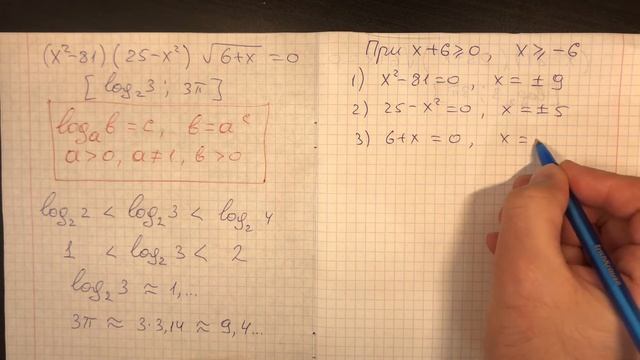 (x²-81)(25-x²) √6+x = 0
[log₂3; 3π]
logₐb = c, b = aᶜ
a>0, a≠1, b>0
log₂2 < log₂3 < log₂4
1 < log₂3 < 2
log₂3 ≈ 1,...
3π ≈ 3·3,14 ≈ 9,4...
При x+6⩾0, x⩾-6
1) x²-81=0, x = ±9
2) 25-x²=0, x=±5
3) 6+x = 0, x =